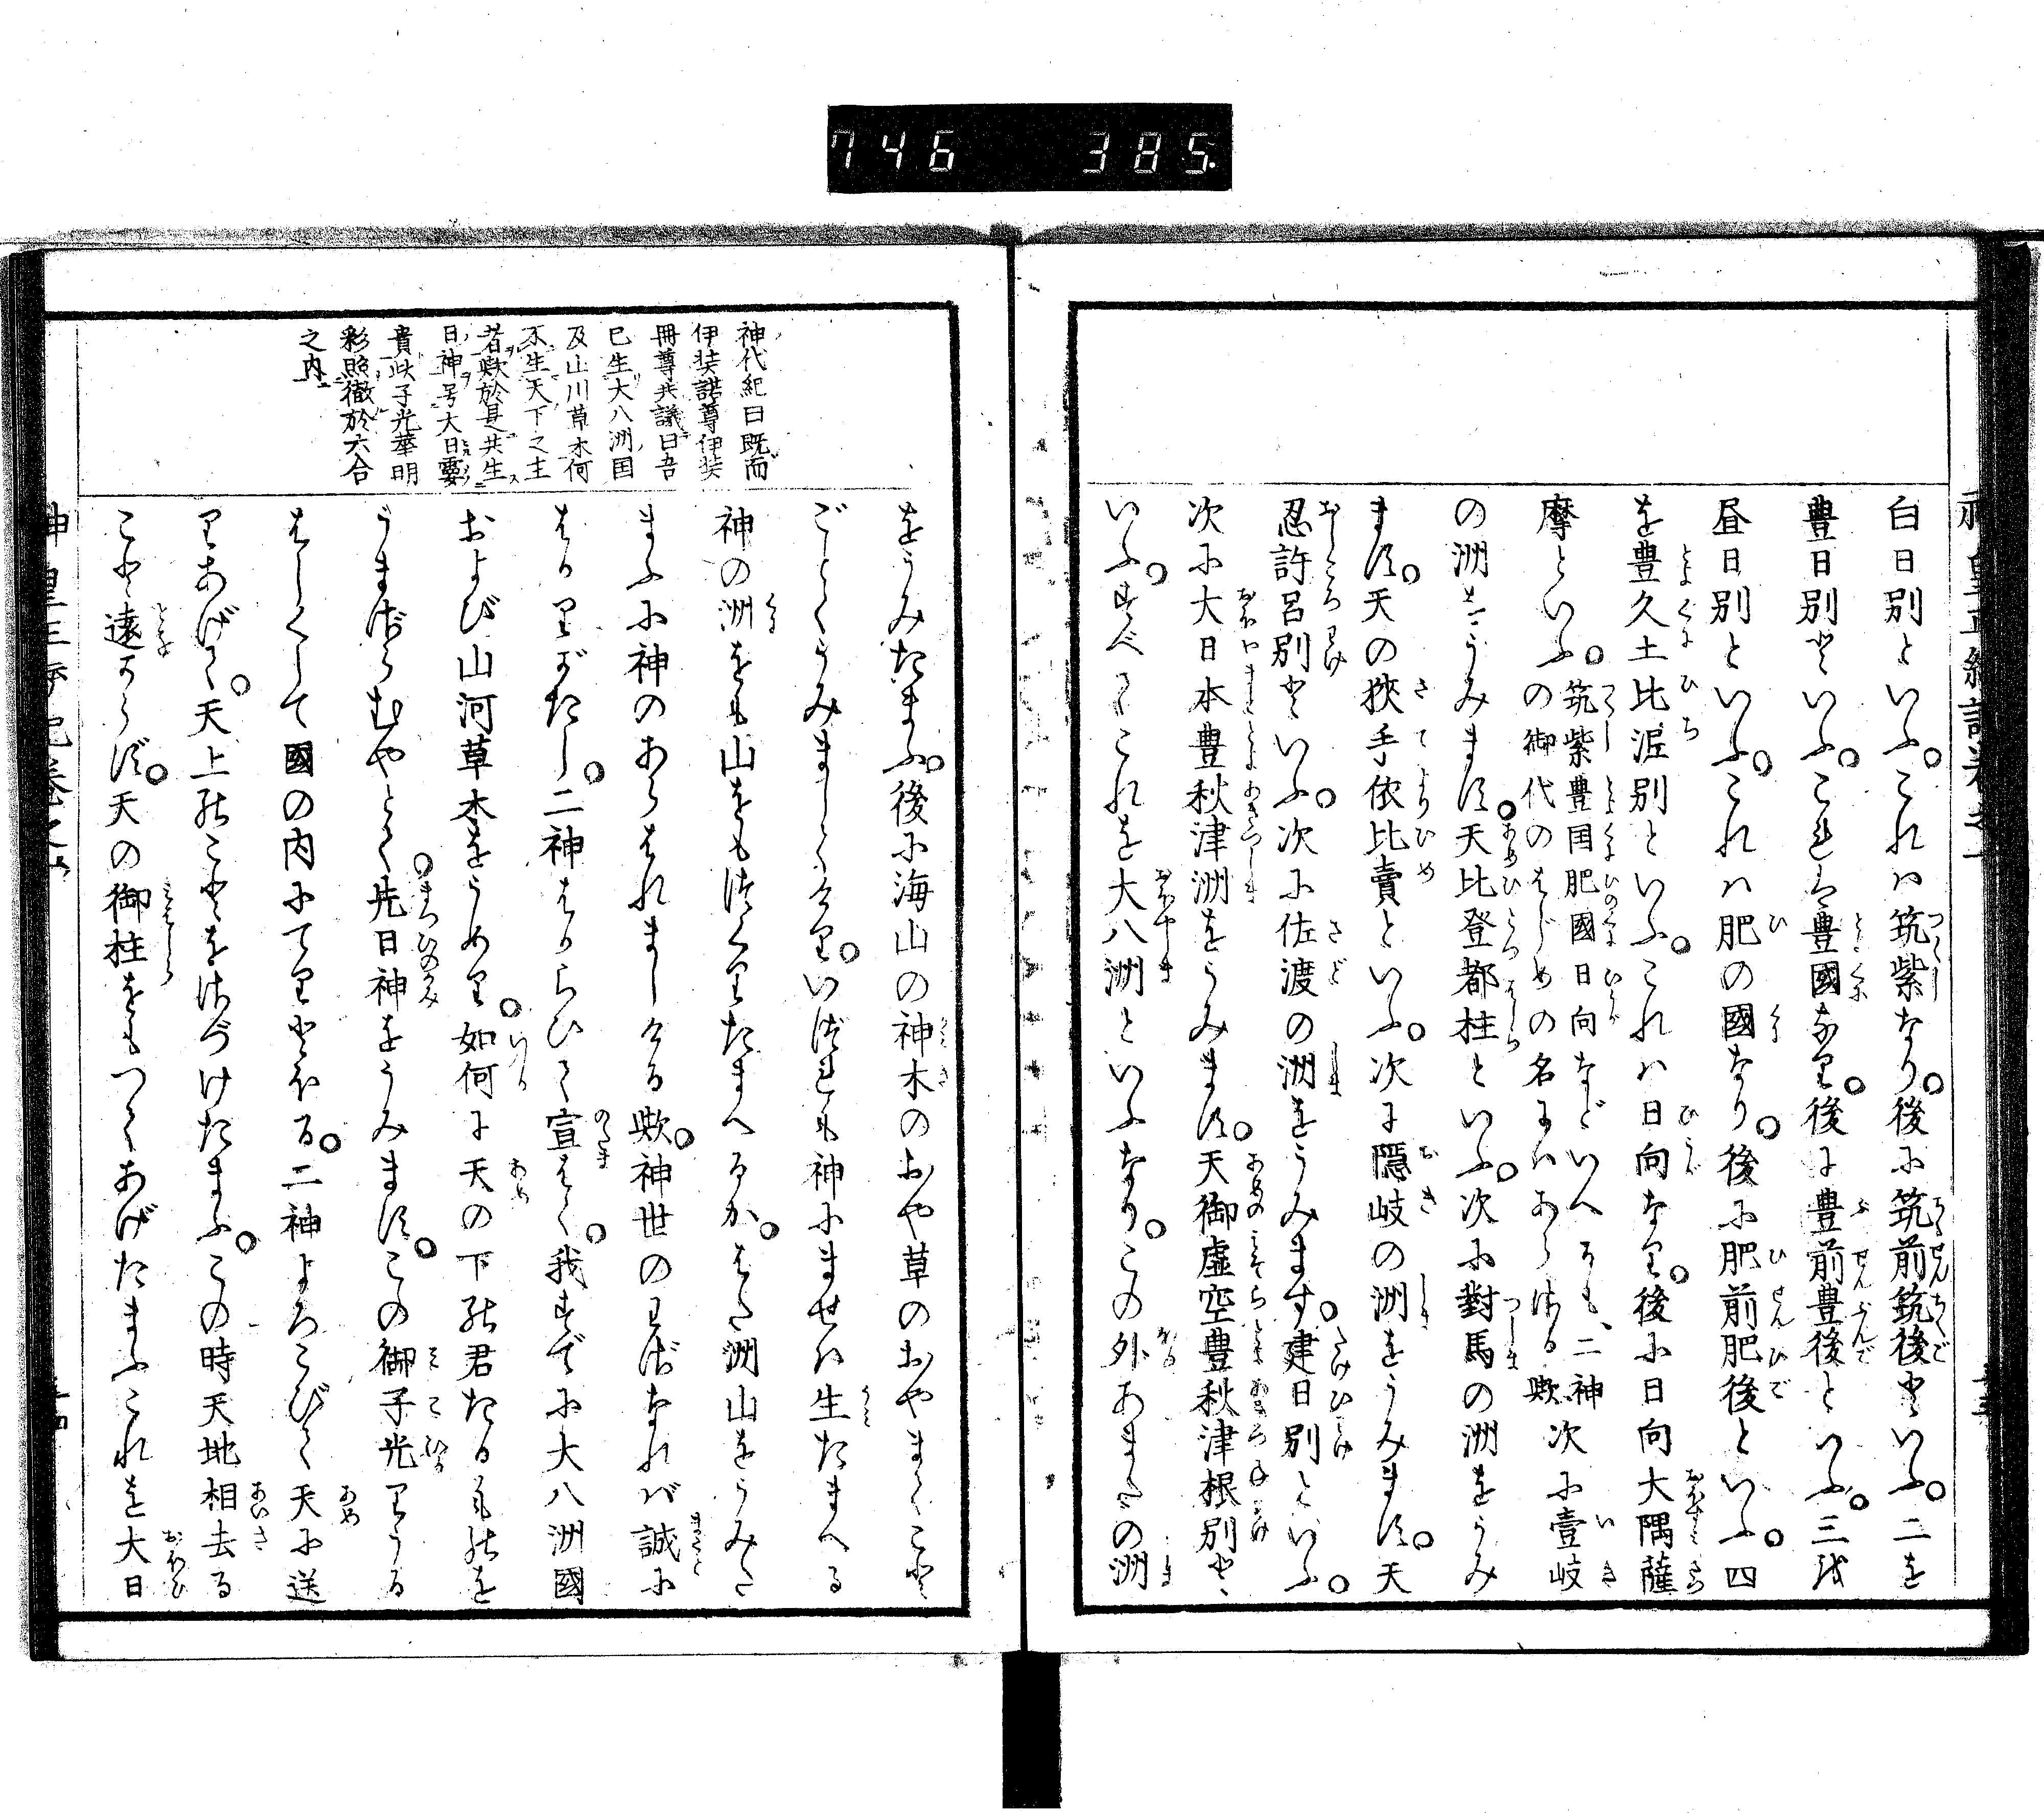 746 385
白日別といふ。これハ筑紫なり。後に筑前筑後といふ。二を
豊日別といふ。これは豊國なり。後に豊前豊後といふ。三を
昼日別といふ。これハ肥の國なり。後に肥前肥後といふ。四
を豊久土比泥別といふ。これハ日向なり。後に日向大隅薩
摩といふ。筑紫豊国肥國日向などいへるも、二神
の御代のはじめの名にハあらざる歟
次に壹岐
の洲をうみます。天比登都柱といふ。次に對馬の洲をうみ
ます。天の狹手依比賣といふ。次に隠岐の洲をうみます。天
忍許呂別といふ。次に佐渡の洲をうみます。建日別といふ。
次に大日本豊秋津洲をうみます。天御虚空豊秋津根別と
いふ。すべてこれを大八洲といふなり。この外あまたの洲
神代紀曰既而
伊弉諾尊伊弉
冊尊共議曰吾
已生大八洲国
及山川草木何
不生天下之主
者歟於是共生
日神号大日孁
貴此子光華明
彩照徹於六合
之内
をうみたまふ。後に海山の神木のおや草のおやまでこと
ごとくうみましてけり。いづれも神にませハ生たまへる
神の洲をも山をもつくりたまへるか。はた洲山をうみた
まふに神のあらはれましける歟。神世のわざなれバ誠に
はかりがたし。二神はからひて宣はく。我すでに大八洲國
および山河草木をうめり。如何に天の下の君たるものを
うまざらむやとて。先日神をうみます。この御子光りうる
はしくして國の内にてりとほる。二神よろこびて天に送
りあげて。天上のことをさづけたまふ。この時天地相去る
こと遠からず。天の御柱をもつてあげたまふこれを大日